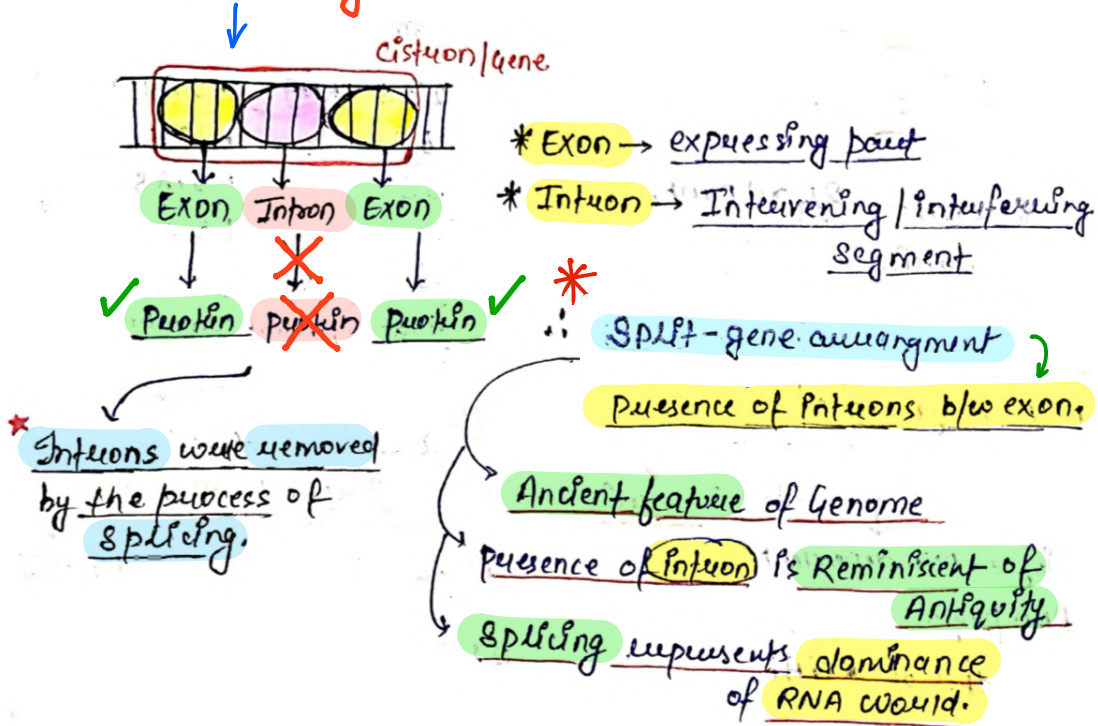 Cistron/Gene
* Exon → expressing part
Exon Intron Exon
* Intron → Intervening / interferring
segment
Protein protein protein
∴ Split-gene arrangment
presence of introns b/w exon.
Introns were removed
by the process of
Splicing.
Ancient feature of Genome
presence of intron is Reminiscent of
Antiquity
Splicing represents dominance
of RNA world.